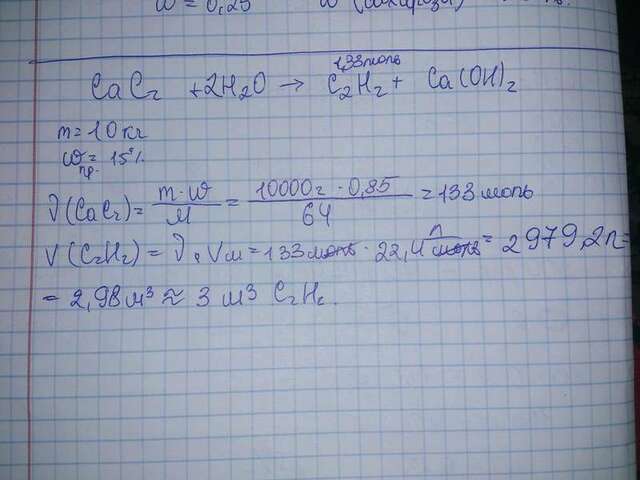 ω = 0,25
1,33 моль
CaC₂ + 2H₂O → C₂H₂ + Ca(OH)₂
m = 10 кг
ω пр. = 15%
ν(CaC₂) = m·ω / M = 10000г · 0,85 / 64 = 133 моль
V(C₂H₂) = ν · Vм = 133 моль · 22,4 л/моль = 2979,2л =
= 2,98 м³ ≈ 3 м³ C₂H₂.